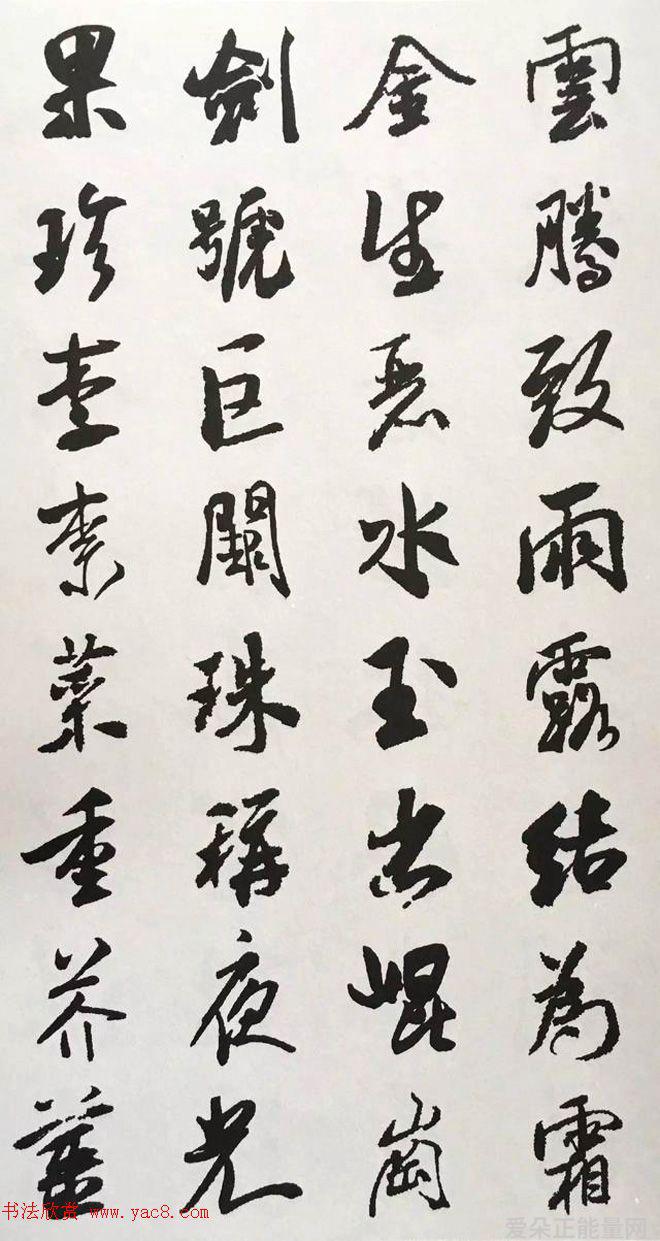 雲騰致雨露結為霜
金生麗水玉出崐崗
劍號巨闕珠稱夜光
果珍李柰菜重芥薑
书法欣赏 www.yac8.com
爱朵正能量网